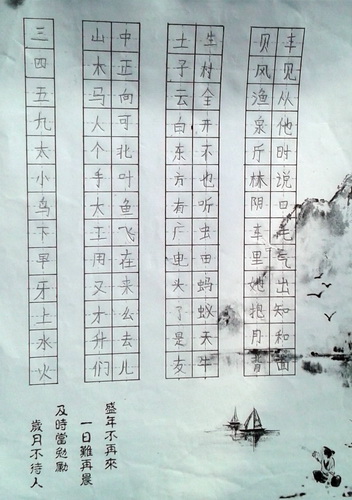 车见从他时说口毛气出知和面
贝风渔泉斤林阴车里她把月背
生村全开不也听虫田蚂蚁天牛
土子云白东方有广电头了是友
中正向可北叶鱼飞在来么去儿
山木马人个手大王用又才升们
三四五九太小鸟下早牙上水火
盛年不再來
一日難再晨
及時當勉勵
歲月不待人